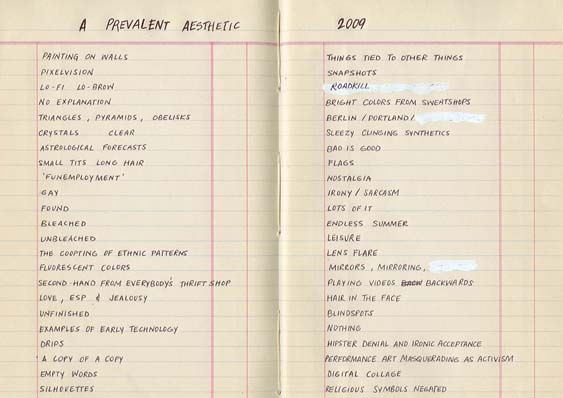 A PREVALENT AESTHETIC 2009
PAINTING ON WALLS
PIXELVISION
LO-FI LO-BROW
NO EXPLANATION
TRIANGLES, PYRAMIDS, OBELISKS
CRYSTALS CLEAR
ASTROLOGICAL FORECASTS
SMALL TITS LONG HAIR
'FUNEMPLOYMENT'
GAY
FOUND
BLEACHED
UNBLEACHED
THE COOPTING OF ETHNIC PATTERNS
FLUORESCENT COLORS
SECOND-HAND FROM EVERYBODY'S THRIFT SHOP
LOVE, ESP & JEALOUSY
UNFINISHED
EXAMPLES OF EARLY TECHNOLOGY
DRIPS
A COPY OF A COPY
EMPTY WORDS
SILHOUETTES
THINGS TIED TO OTHER THINGS
SNAPSHOTS
ROADKILL
BRIGHT COLORS FROM SWEATSHOPS
BERLIN / PORTLAND /
SLEEZY CLINGING SYNTHETICS
BAD IS GOOD
FLAGS
NOSTALGIA
IRONY / SARCASM
LOTS OF IT
ENDLESS SUMMER
LEISURE
LENS FLARE
MIRRORS, MIRRORING,
PLAYING VIDEOS BACKWARDS
HAIR IN THE FACE
BLINDSPOTS
NOTHING
HIPSTER DENIAL AND IRONIC ACCEPTANCE
PERFORMANCE ART MASQUERADING AS ACTIVISM
DIGITAL COLLAGE
RELIGIOUS SYMBOLS NEGATED